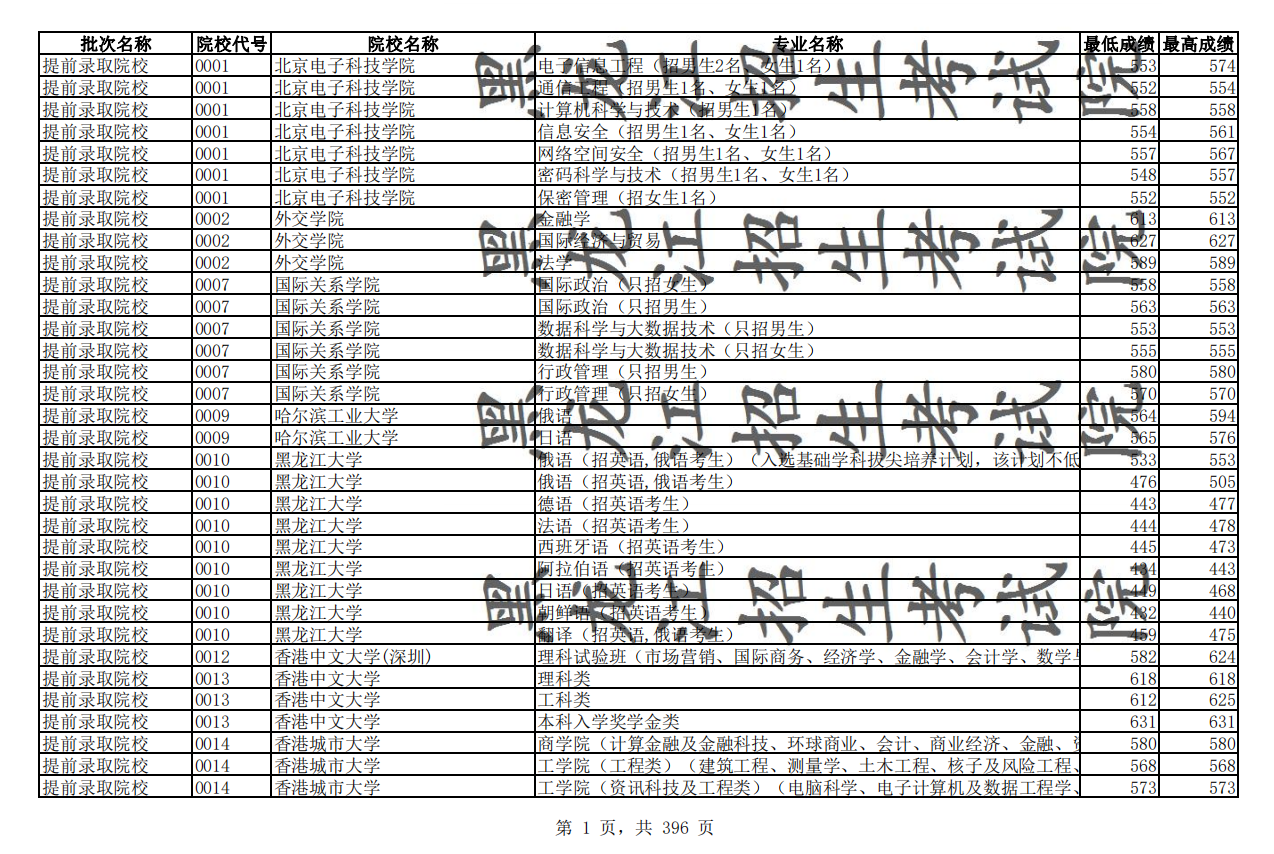 批次名称 院校代号 院校名称 专业名称 最低成绩 最高成绩
提前录取院校 0001 北京电子科技学院 电子信息工程（招男生2名、女生1名） 553 574
提前录取院校 0001 北京电子科技学院 通信工程（招男生1名、女生1名） 552 554
提前录取院校 0001 北京电子科技学院 计算机科学与技术（招男生1名） 558 558
提前录取院校 0001 北京电子科技学院 信息安全（招男生1名、女生1名） 554 561
提前录取院校 0001 北京电子科技学院 网络空间安全（招男生1名、女生1名） 557 567
提前录取院校 0001 北京电子科技学院 密码科学与技术（招男生1名、女生1名） 548 557
提前录取院校 0001 北京电子科技学院 保密管理（招女生1名） 552 552
提前录取院校 0002 外交学院 金融学 613 613
提前录取院校 0002 外交学院 国际经济与贸易 627 627
提前录取院校 0002 外交学院 法学 589 589
提前录取院校 0007 国际关系学院 国际政治（只招女生） 558 558
提前录取院校 0007 国际关系学院 国际政治（只招男生） 563 563
提前录取院校 0007 国际关系学院 数据科学与大数据技术（只招男生） 553 553
提前录取院校 0007 国际关系学院 数据科学与大数据技术（只招女生） 555 555
提前录取院校 0007 国际关系学院 行政管理（只招男生） 580 580
提前录取院校 0007 国际关系学院 行政管理（只招女生） 570 570
提前录取院校 0009 哈尔滨工业大学 俄语 564 594
提前录取院校 0009 哈尔滨工业大学 日语 565 576
提前录取院校 0010 黑龙江大学 俄语（招英语,俄语考生）（入选基础学科拔尖培养计划，该计划不低 533 553
提前录取院校 0010 黑龙江大学 俄语（招英语,俄语考生） 476 505
提前录取院校 0010 黑龙江大学 德语（招英语考生） 443 477
提前录取院校 0010 黑龙江大学 法语（招英语考生） 444 478
提前录取院校 0010 黑龙江大学 西班牙语（招英语考生） 445 473
提前录取院校 0010 黑龙江大学 阿拉伯语（招英语考生） 434 443
提前录取院校 0010 黑龙江大学 日语（招英语考生） 449 468
提前录取院校 0010 黑龙江大学 朝鲜语（招英语考生） 432 440
提前录取院校 0010 黑龙江大学 翻译（招英语,俄语考生） 459 475
提前录取院校 0012 香港中文大学(深圳) 理科试验班（市场营销、国际商务、经济学、金融学、会计学、数学与 582 624
提前录取院校 0013 香港中文大学 理科类 618 618
提前录取院校 0013 香港中文大学 工科类 612 625
提前录取院校 0013 香港中文大学 本科入学奖学金类 631 631
提前录取院校 0014 香港城市大学 商学院（计算金融及金融科技、环球商业、会计、商业经济、金融、 580 580
提前录取院校 0014 香港城市大学 工学院（工程类）（建筑工程、测量学、土木工程、核子及风险工程、 568 568
提前录取院校 0014 香港城市大学 工学院（资讯科技及工程类）（电脑科学、电子计算机及数据工程学、 573 573
黑龙江招生考试院
黑龙江招生考试院
黑龙江招生考试院
黑龙江招生考试院
第 1 页，共 396 页